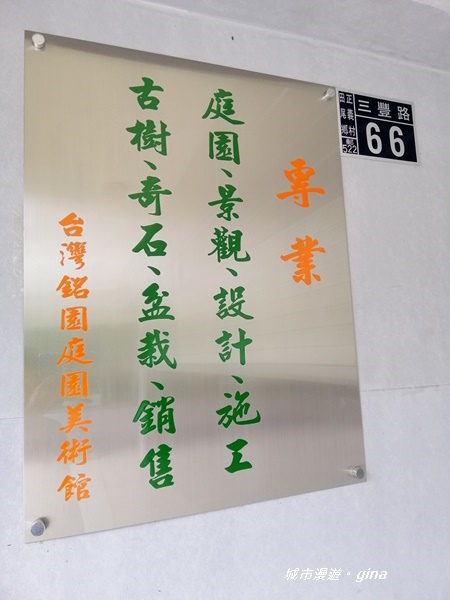 專業
庭園、景觀、設計、施工
古樹、奇石、盆栽、銷售
台灣銘園庭園美術館
三豐路
66
田尾鄉
正義村
郵
522
城市漫遊。gina